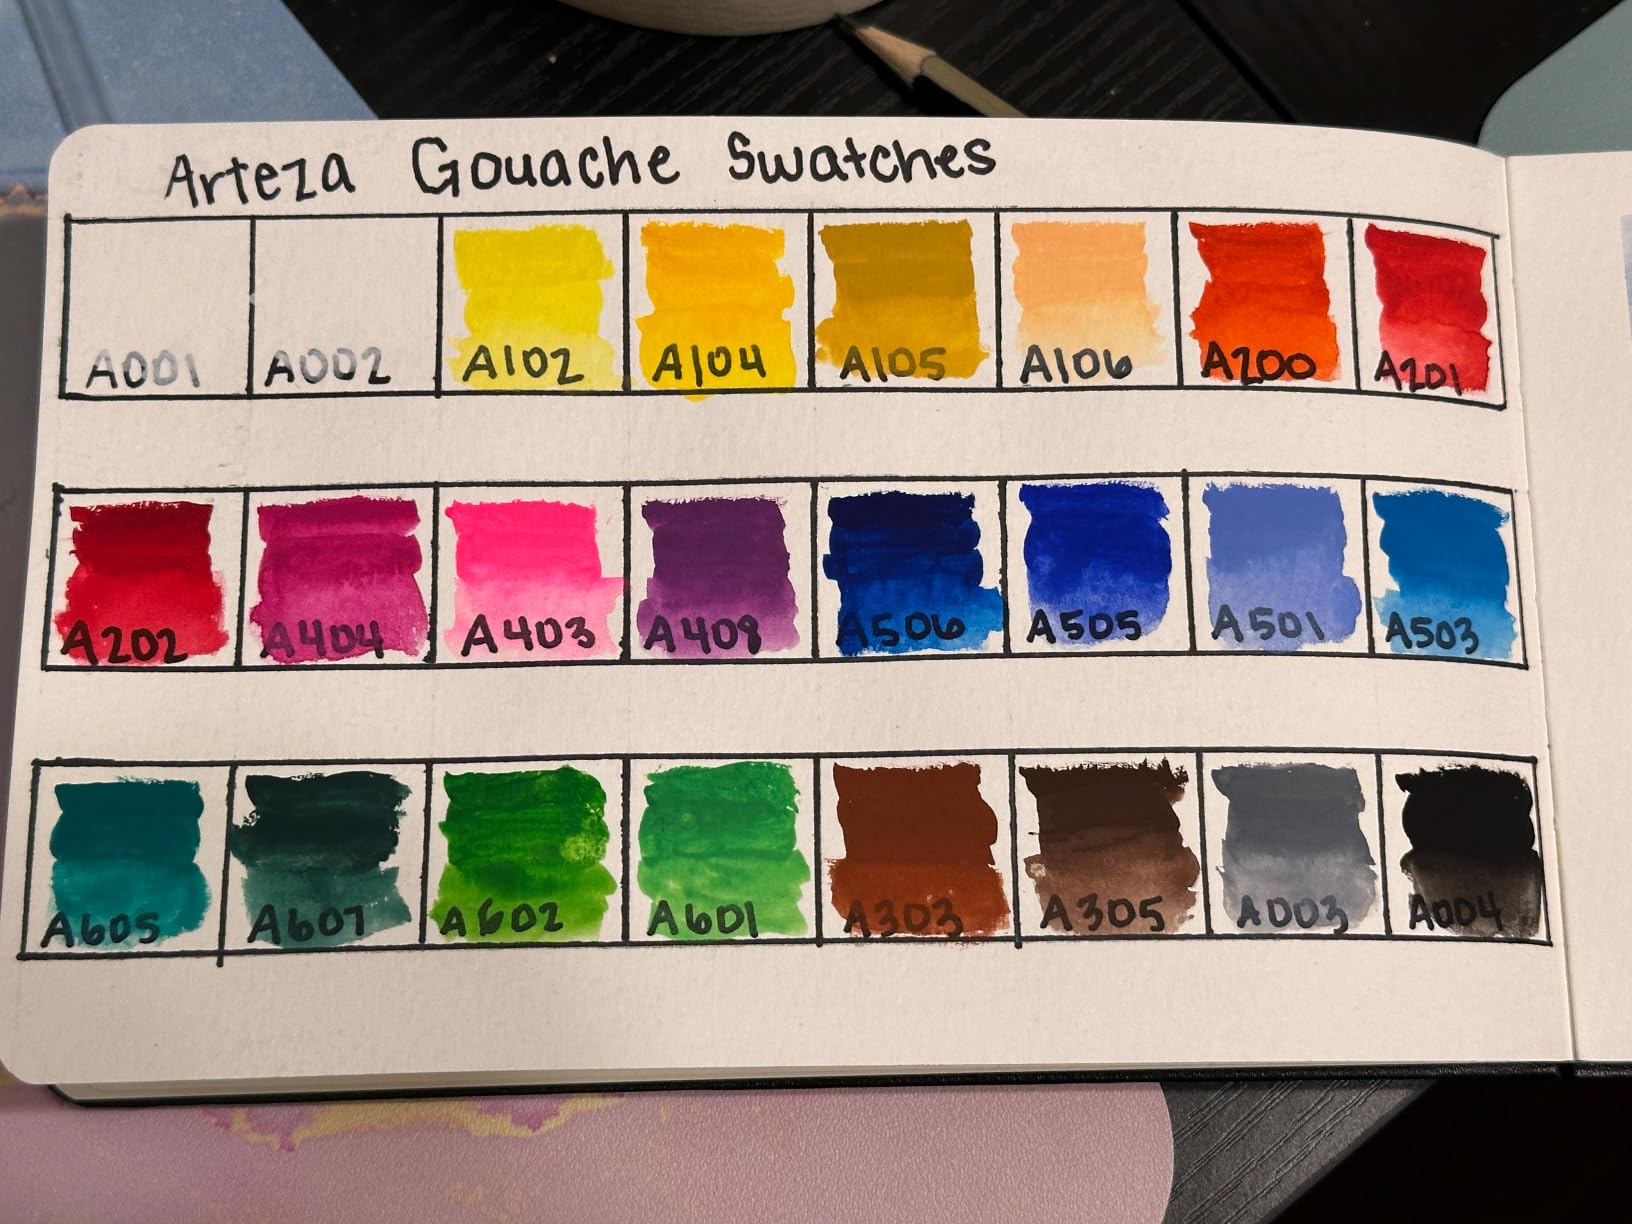 Arteza Gouache Swatches
A001 A002 A102 A104 A105 A106 A200 A201
A202 A404 A403 A408 A506 A505 A501 A503
A605 A607 A602 A601 A303 A305 A003 A004